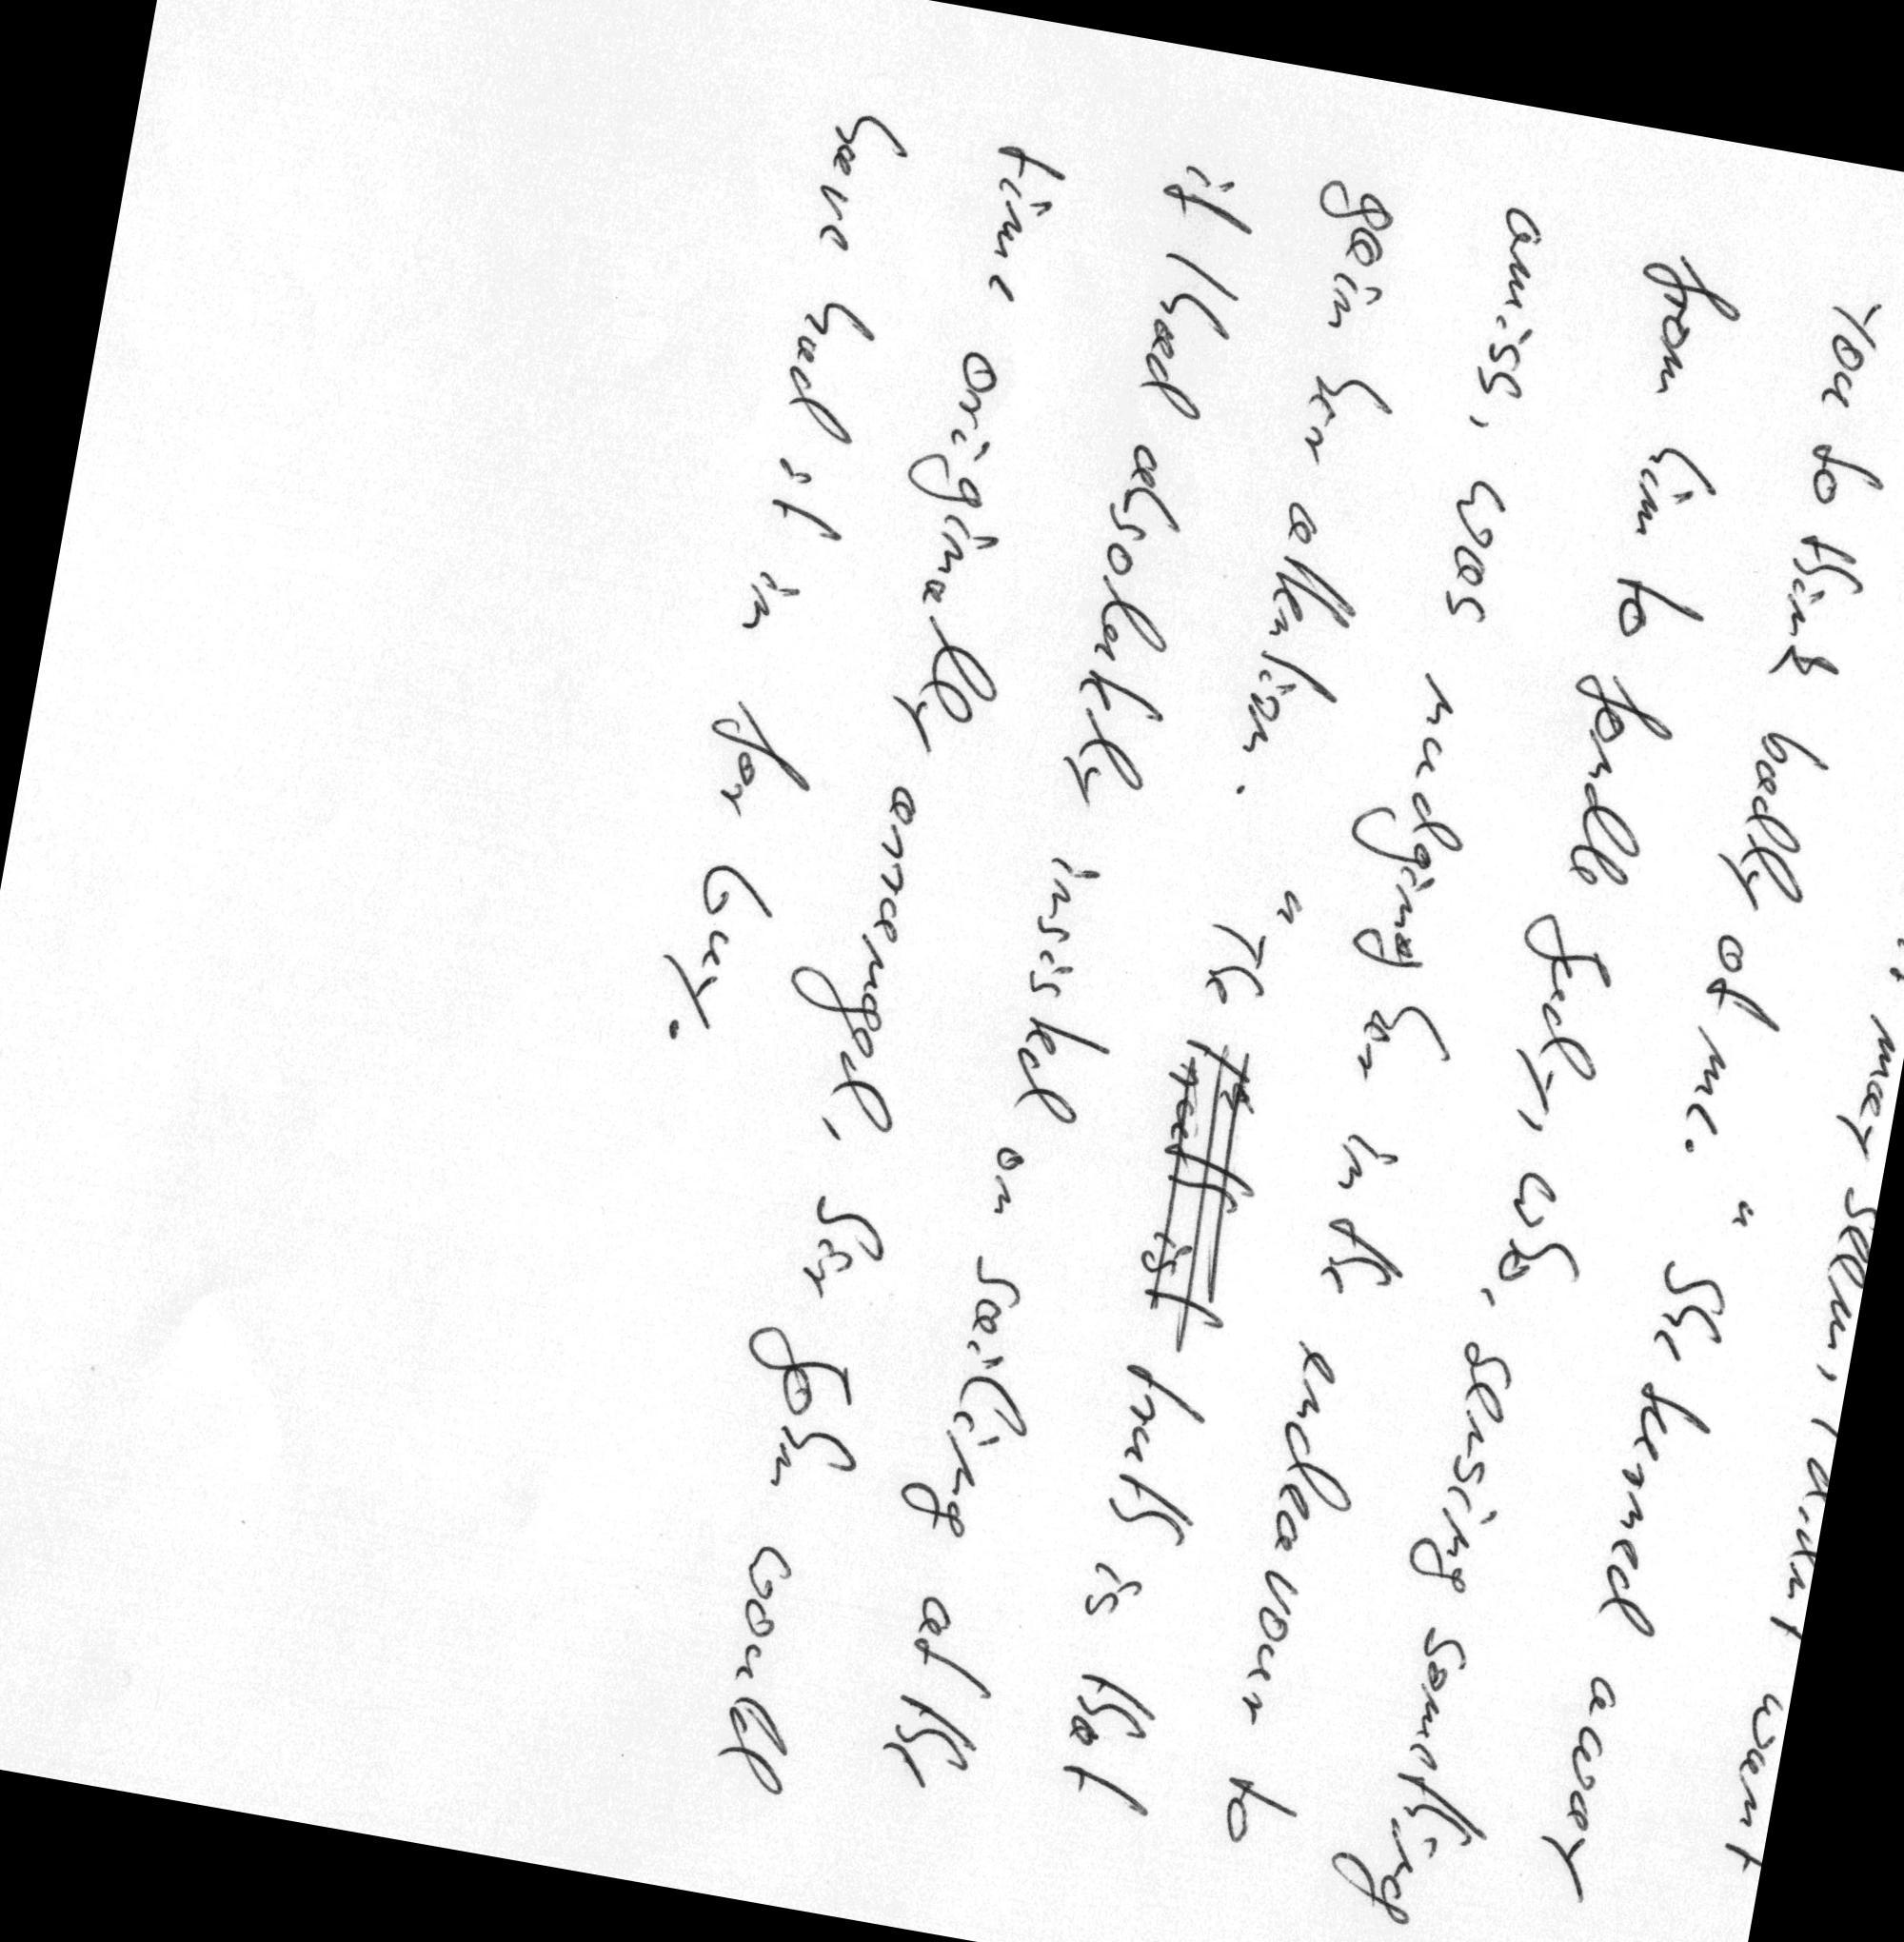 may seem, I didn't want
you to think badly of me." She turned away
from him to fondle Judy, who, sensing something
amiss, was nudging her in the endeavour to
gain her attention. "The truth is that
if I had absolutely insisted on sailing at the
time originally arranged, Sir John would
have had it in for Guy.